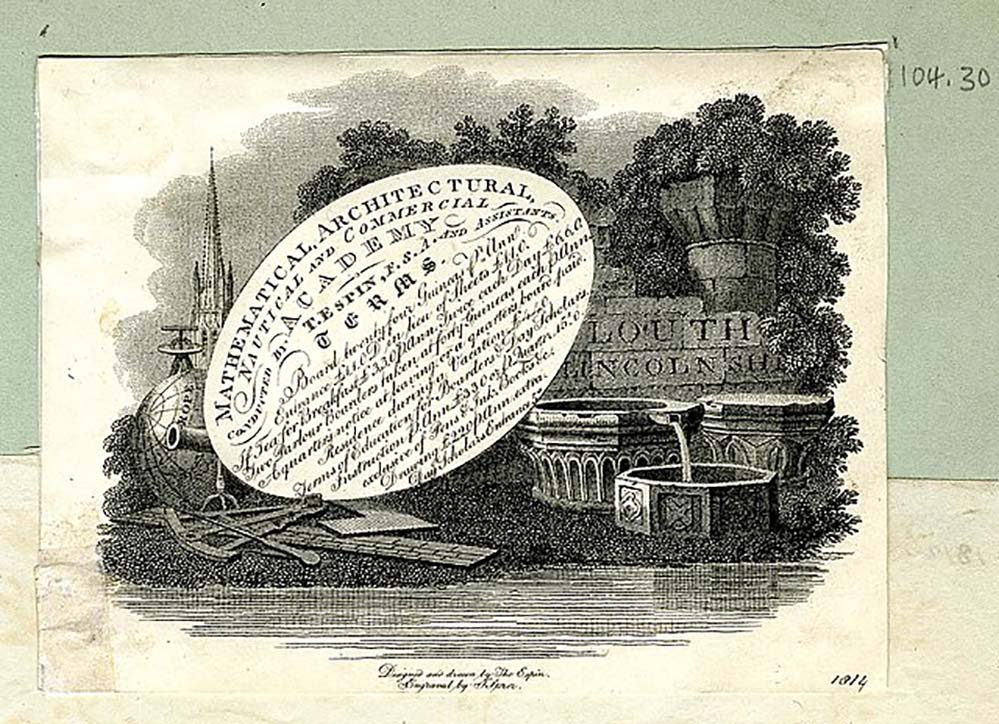 104.30
MATHEMATICAL, ARCHITECTURAL,
NAUTICAL AND COMMERCIAL
ACADEMY
CONDUCTED BY T. ESPIN, F.S.A. AND ASSISTANTS.
TERMS.
Board twenty four Guineas P. Ann.
Entrance £1.1.0. Ditto use of Theatre £1.1.0.
If Tea for Breakfast £3.3.0 P. Ann. twice each Day £6.6.0.
Five Parlour Boarders taken at forty Guineas each P. Ann.
A quarters notice at leaving, or a quarters board paid.
Residence during Vacation
Terms of Education for Boarders & Day Scholars.
Instruction P. Ann. £3.3.0 or P. Quarter
exclusive of Pens & Ink, Books &c.
Drawing £2.2.0 P. Ann. extra.
Day Scholars Entrance
LOUTH
LINCOLNSHI
Designed and drawn by Tho Espin.
Engraved by
1814